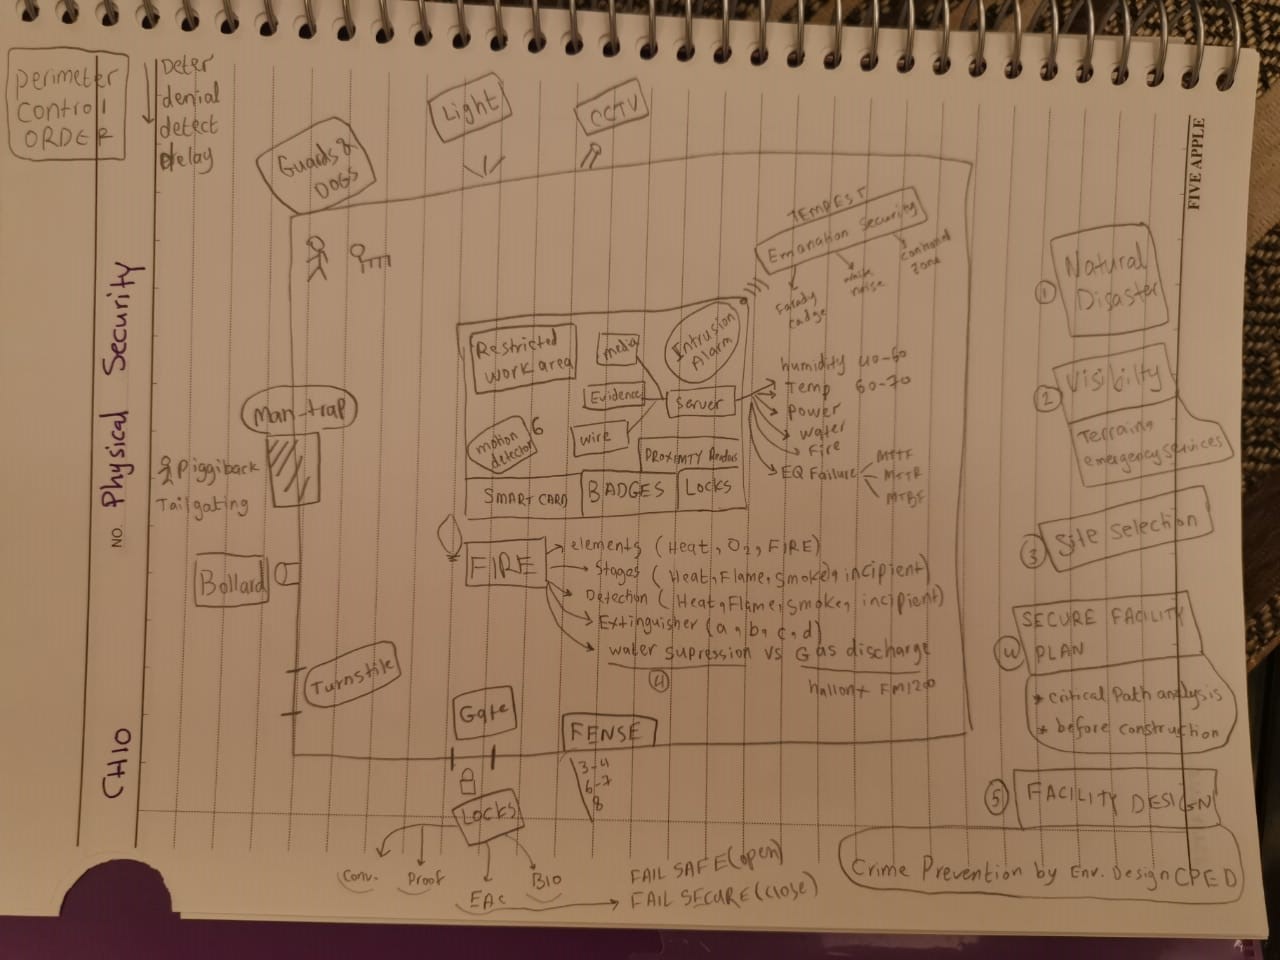 Perimeter
Control
ORDER
Deter
denial
detect
delay
NO. Physical Security
CH10
Guards &
DOGS
Light
CCTV
TEMPEST
Emanation Security
Farady
cadge
white
noise
controled
zone
Restricted
work area
media
Intrusion
Alarm
Evidence
server
wire
motion
detector
6
PROXIMITY Readers
SMART CARD
BADGES
LOCKS
humidity 40-60
Temp 60-70
Power
water
Fire
EQ Failure
MTTF
MTTR
MTBF
Man-trap
Piggiback
Tailgating
Bollard
Turnstile
FIRE
elements (Heat, O2, FIRE)
Stages (Heat, Flame, Smoke, incipient)
Detection (Heat, Flame, Smoke, incipient)
Extinguisher (a, b, c, d)
water supression vs Gas discharge
4
hallon x FM1200
Gate
FENSE
3-4
6-7
8
LOCKS
Conv.
Proof
EAC
BIO
FAIL SAFE (open)
FAIL SECURE (close)
FIVE APPLE
1
Natural
Disaster
2
Visibilty
Terraing
emergency services
3
Site selection
4
SECURE FACILITY
PLAN
* critical Path analysis
* before construction
5
FACILITY DESIGN
Crime Prevention by Env. Design CPED